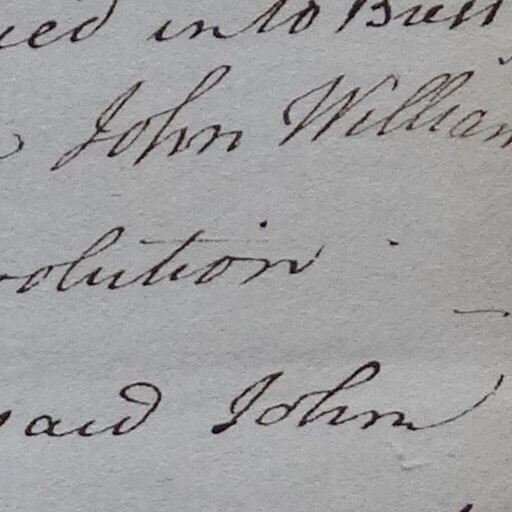 ied into Busi
John William
olution.
said John